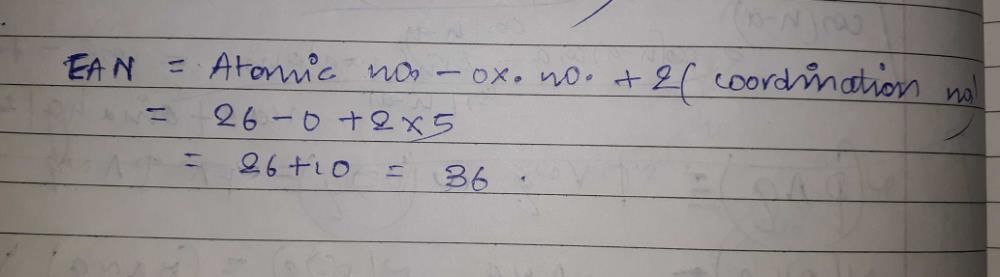 EAN = Atomic no. - ox. no. + 2( coordination no)
= 26 - 0 + 2 x 5
= 26 + 10 = 36 .